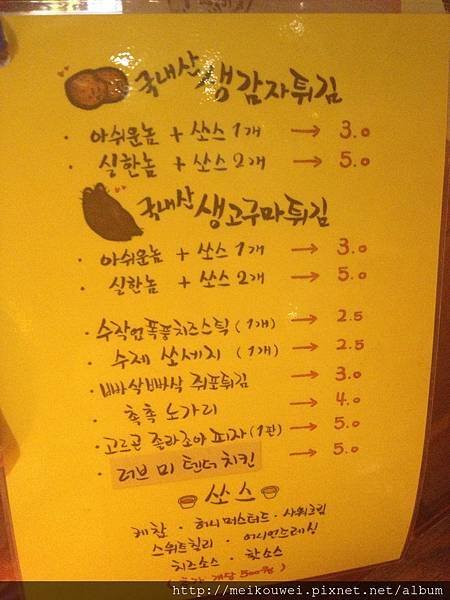 국내산 생감자튀김
· 아쉬운놈 + 쏘스 1개 → 3.0
· 실한놈 + 쏘스 2개 → 5.0
국내산 생고구마튀김
· 아쉬운놈 + 쏘스 1개 → 3.0
· 실한놈 + 쏘스 2개 → 5.0
· 수작업폭풍치즈스틱 (1개) → 2.5
· 수제 쏘세지 (1개) → 2.5
· 빠삭빠삭 쥐포튀김 → 3.0
· 촉촉 노가리 → 4.0
· 고르곤 졸라조아 피자 (1판) → 5.0
· 러브 미 텐더 치킨 → 5.0
쏘스
케찹 · 허니머스터드 · 사워크림
스위트칠리 · 어니언드레싱
치즈소스 · 핫소스
개당 500원)
http://meikouwei.pixnet.net/album